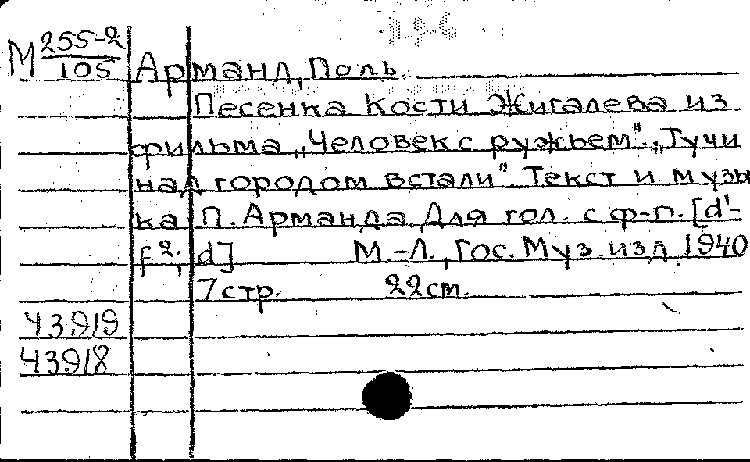 М 255-2/105
Арманд, Поль
Песенка Кости Жигалева из
фильма „Человек с ружьем". „Тучи
над городом встали". Текст и музы
ка П. Арманда. Для гол. с ф-п. [d'-
f²; d] М.-Л., Гос. Муз. изд. 1940
7 стр. 22 см.
43919
43918